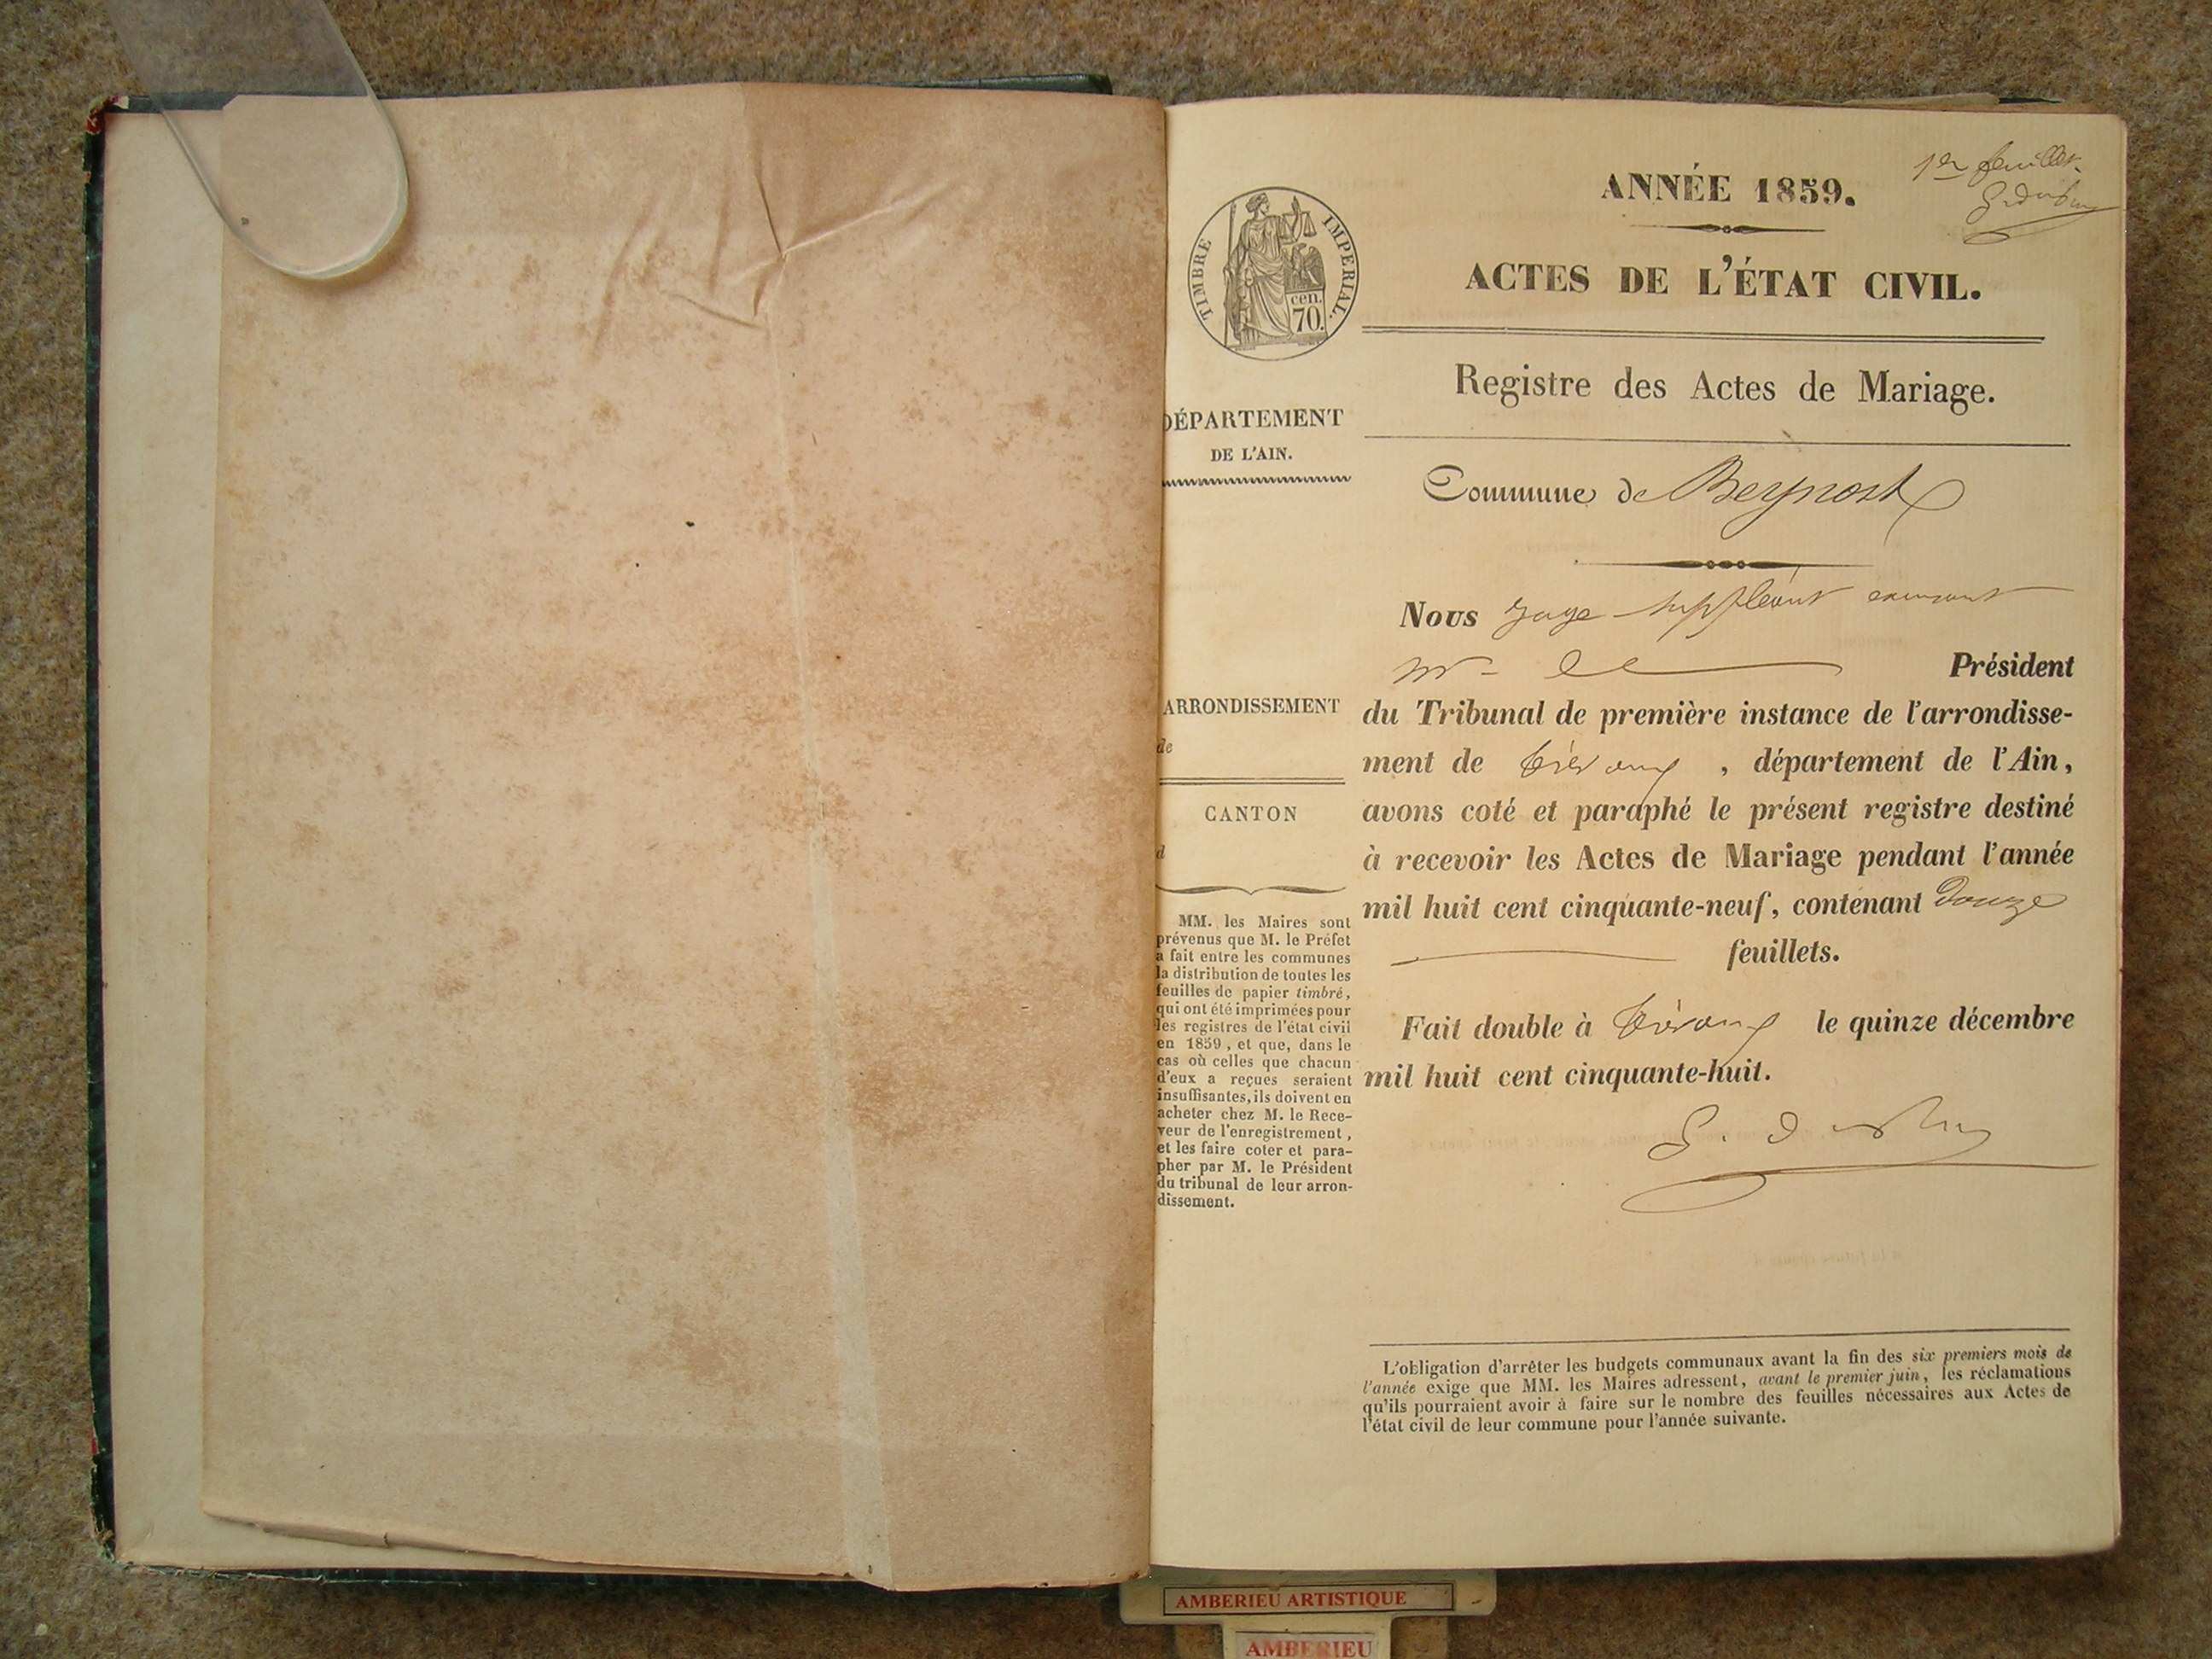 1er feuillet.
ANNÉE 1859.
ACTES DE L'ÉTAT CIVIL.
TIMBRE IMPERIAL.
cen.
70.
Registre des Actes de Mariage.
DÉPARTEMENT
DE L'AIN.
Commune de Beynost
Nous Juge suppléant
Mr le Président
du Tribunal de première instance de l'arrondisse-
ment de Trévoux, département de l'Ain,
avons coté et paraphé le présent registre destiné
à recevoir les Actes de Mariage pendant l'année
mil huit cent cinquante-neuf, contenant Douze
feuillets.
Fait double à Trévoux le quinze décembre
mil huit cent cinquante-huit.
ARRONDISSEMENT
de
CANTON
d
MM. les Maires sont
prévenus que M. le Préfet
a fait entre les communes
la distribution de toutes les
feuilles de papier timbré,
qui ont été imprimées pour
les registres de l'état civil
en 1859, et que, dans le
cas où celles que chacun
d'eux a reçues seraient
insuffisantes, ils doivent en
acheter chez M. le Rece-
veur de l'enregistrement,
et les faire coter et para-
pher par M. le Président
du tribunal de leur arron-
dissement.
L'obligation d'arrêter les budgets communaux avant la fin des six premiers mois de
l'année exige que MM. les Maires adressent, avant le premier juin, les réclamations
qu'ils pourraient avoir à faire sur le nombre des feuilles nécessaires aux Actes de
l'état civil de leur commune pour l'année suivante.
AMBERIEU ARTISTIQUE
AMBERIEU